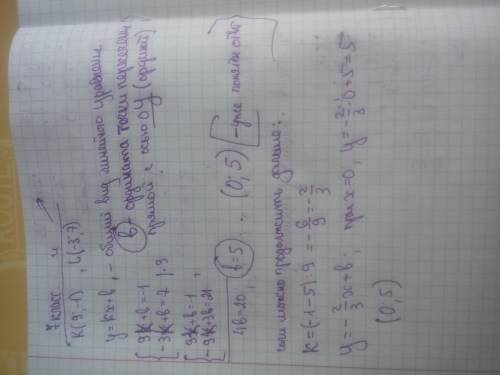 7 класс
K(9; -1), L(-3; 7)
y = kx + b, - общий вид линейного уравнения
b - ордината точки пересечения
прямой с осью OY (ординат)
{ 9k + b = -1
{ -3k + b = 7 | · 3
{ 9k + b = -1
{ -9k + 3b = 21
4b = 20; b = 5 ... (0; 5) - уже понятен ответ
если можно продолжить дальше:
k = (-1 - 5) : 9 = -6/9 = -2/3
y = -2/3 x + b; при x = 0, y = -2/3 · 0 + 5 = 5
(0; 5)